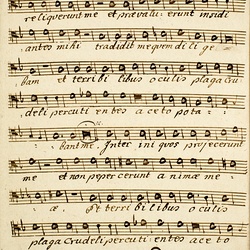 reliquerunt me et praevalu: erunt insidi
antes mihi tradidit me quem dili ge:
bam et terribi libus oculis plaga cru:
deli percuti entes aceto pota:
bant me. Inter iniquos projecerunt
me et non pepercerunt animae me:
ae. et terribi libus oculis
plaga crudeli percuti: entes aceto